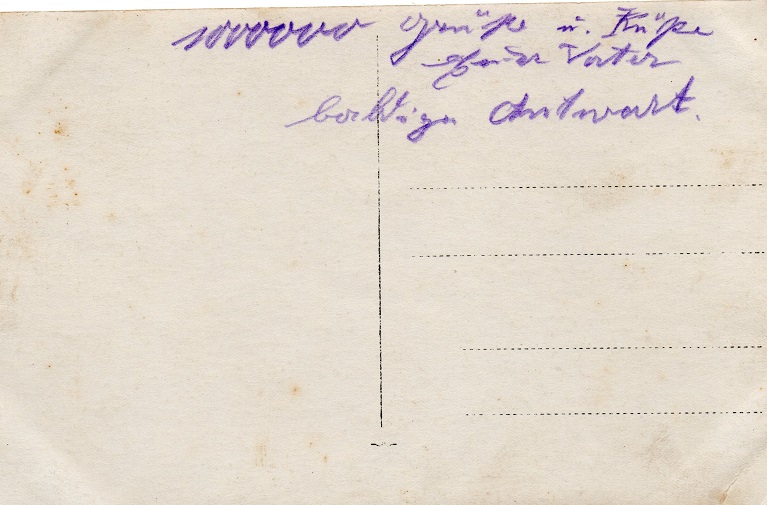 1000000 Grüße u. Küße
Euer Vater
baldige Antwort.